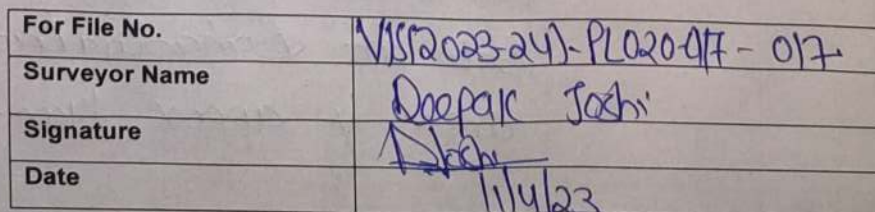 For File No. VIS(2023-24)-PL020-017-017
Surveyor Name Deepak Joshi
Signature DJoshi
Date 11/4/23